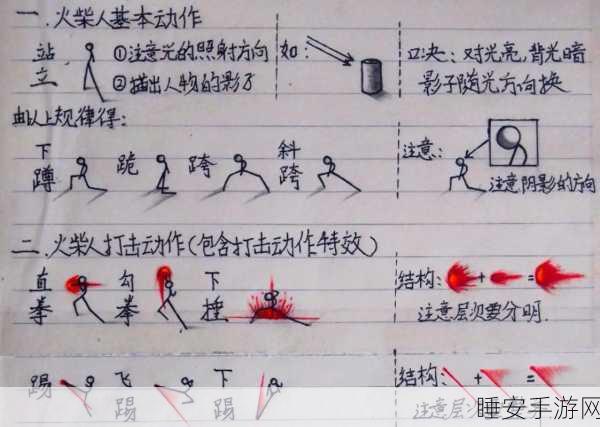 一.火柴人基本动作
站立 ①注意光的照射方向 如: 口决:对光亮,背光暗
②描出人物的影子 影子随光方向换
由以上规律得:
下蹲 跪 跨 斜跨 注意:
注意阴影的方向
二.火柴人打击动作(包含打击动作特效)
直拳 勾拳 下捶 结构: + =
注意层次要分明.
踢 飞踢 下踢 结构: + =
注意层次
睡安手游网